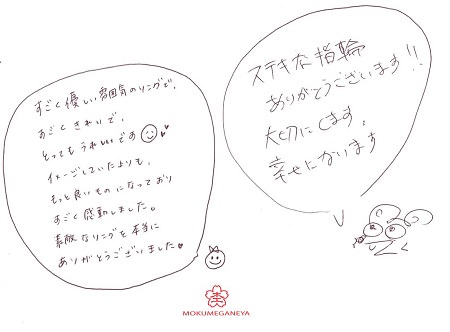 すごく優しい雰囲気のリングで、
すごくきれいで、
とってもうれしいです
イメージしていたよりも、
もっと良いものになっており
すごく感動しました。
素敵なリングを本当に
ありがとうございました
ステキな指輪
ありがとうございます!!
大切にします。
幸せになります
MOKUMEGANEYA